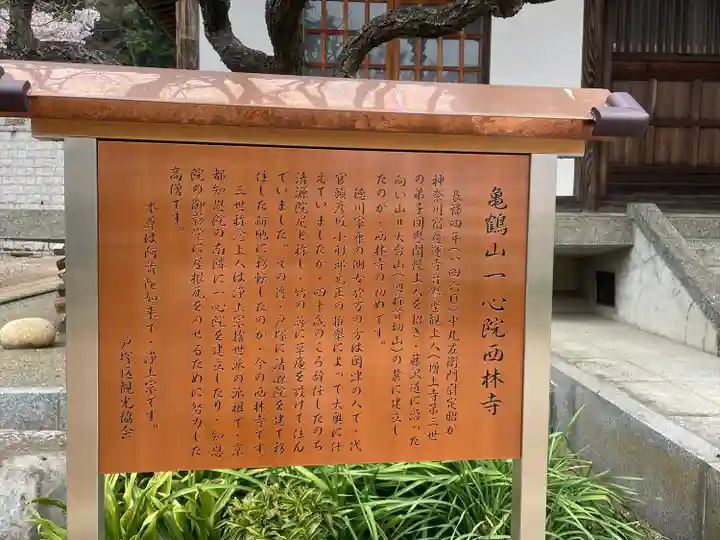 亀鶴山一心院西林寺
長禄四年(一四六〇)小丸左衛門尉定昭が
神奈川宿慶運寺音誉聖観上人(増上寺第三世
の弟子国誉関隆上人を招き・藤沢道に沿った
向い山=大台山(の麓に建立し
たのが・西林寺の初めです。
徳川家康の側女於万の方は岡津の人で・代
官頭彦坂小刑部元正の推挙によって大奥に仕
えていましたが・四十歳のころ辞任したのち
清源院尼と称し・竹の端に草庵を設けて住ん
でいました。その後・戸塚に清源院を建て移
住した跡地に移転したのが・今の西林寺です。
三世称念上人は浄土宗捨世派の派祖で・京
都知恩院の南隣に一心院を建立したり・知恩
院の御影堂に屋根瓦をのせるために努力した
高僧です。
本尊は阿弥陀如来で・浄土宗です。
戸塚区観光協会